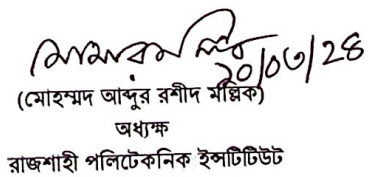 ২০/০৩/২৪
(মোহম্মদ আব্দুর রশীদ মল্লিক)
অধ্যক্ষ
রাজশাহী পলিটেকনিক ইন্সটিটিউট